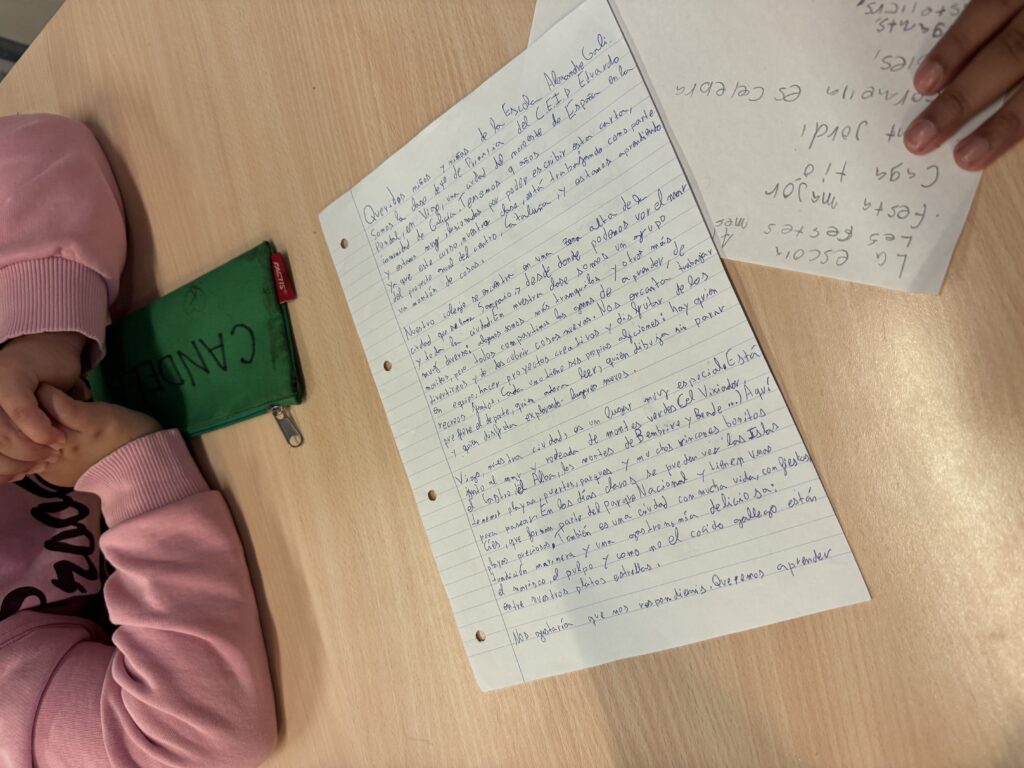 Queridos niños y niñas de la Escola Alexandre Galí
Somos la clase de 4º de Primaria del CEIP Eduardo
Pondal, en Vigo, una ciudad del noroeste de España en la
comunidad de Galicia. Tenemos 9 años
y estamos muy ilusionados por poder escribir esta carta,
ya que este curso, nuestra clase, está trabajando como parte
del proyecto anual del centro, Cataluña y estamos aprendiendo
un montón de cosas.
Nuestro colegio se encuentra en una zona alta de la
ciudad que se llama Sampaio, y desde donde podemos ver el mar
y toda la ciudad. En nuestra clase somos un grupo
muy diverso: algunos somos más tranquilos y otros más
movidos, pero todos compartimos las ganas de aprender, de
divertirnos y de descubrir cosas nuevas. Nos encanta trabajar
en equipo, hacer proyectos creativos y disfrutar de los
recreos juntos. Cada uno tiene sus propias aficiones: hay quien
prefiere el deporte, quien adora leer, quien dibuja sin parar
y quien disfruta explorando lugares nuevos.
Vigo, nuestra ciudad, es un lugar muy especial. Está
junto al mar y rodeada de montes verdes (el Vixiador,
el Castro, el Alba, los montes de Bembrive y Beade...) Aquí
tenemos playas, puertos, parques y muchos rincones bonitos
para pasear. En los días claros se pueden ver las Islas
Cíes, que forman parte del Parque Nacional y tienen unas
playas preciosas. También es una ciudad con mucha vida, con fiestas,
tradición marinera y una gastronomía deliciosa:
el marisco, el pulpo y como no el cocido gallego están
entre nuestros platos estrellas.
Nos gustaría que nos respondierais. Queremos aprender
CANDE
PACTIS
La escon
Les festes mes
Festa major
Caga tió
nt Jordi
ornella es celebra